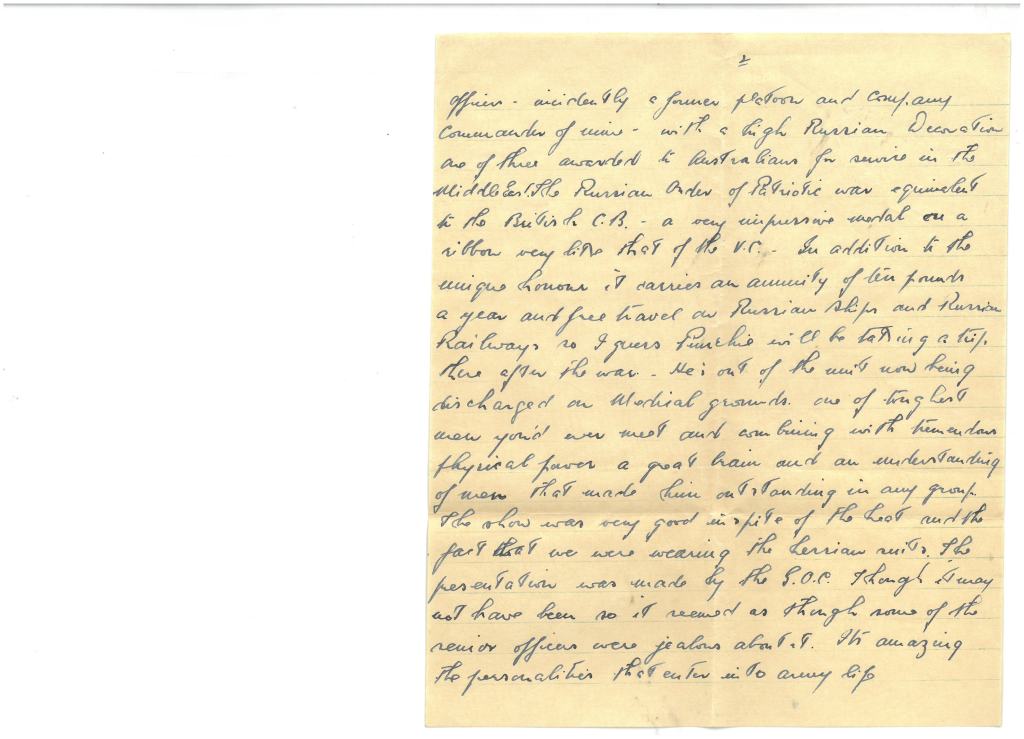 2
officer - incidently a former platoon and company
Commander of mine - with a high Russian Decoration
one of three awarded to Australians for service in the
Middle East. The Russian Order of Patriotic war equivalent
to the British C.B. - a very impressive medal on a
ribbon very like that of the V.C. - In addition to the
unique honour it carries an annuity of ten pounds
a year and free travel on Russian ships and Russian
Railways so I guess will be taking a trip
there after the war - He's out of the unit now being
discharged on Medical grounds. one of toughest
men you'd ever meet and combining with tremendous
physical power a great brain and an understanding
of men that made him outstanding in any group.
The show was very good inspite of the heat and the
fact that we were wearing the suits. The
presentation was made by the G.O.C. Though it may
not have been so it seemed as though some of the
senior officers were jealous about it. Its amazing
the personalities that enter into army life